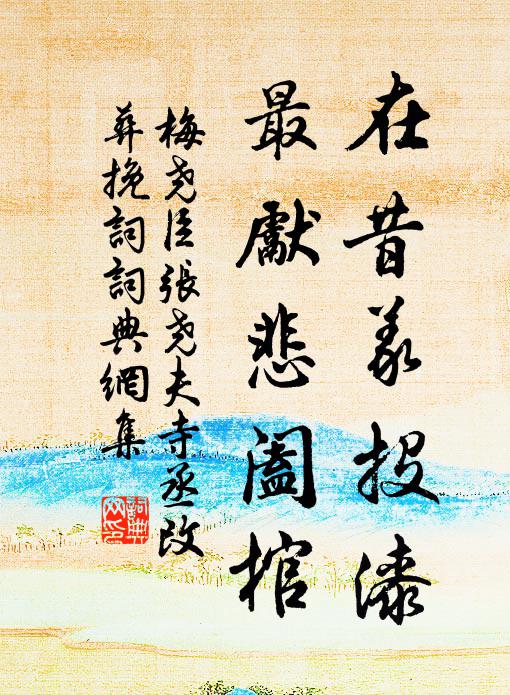 在昔義投漆
最獻悲闔棺
梅堯臣張堯夫寺丞改
葬挽詞詞典網集